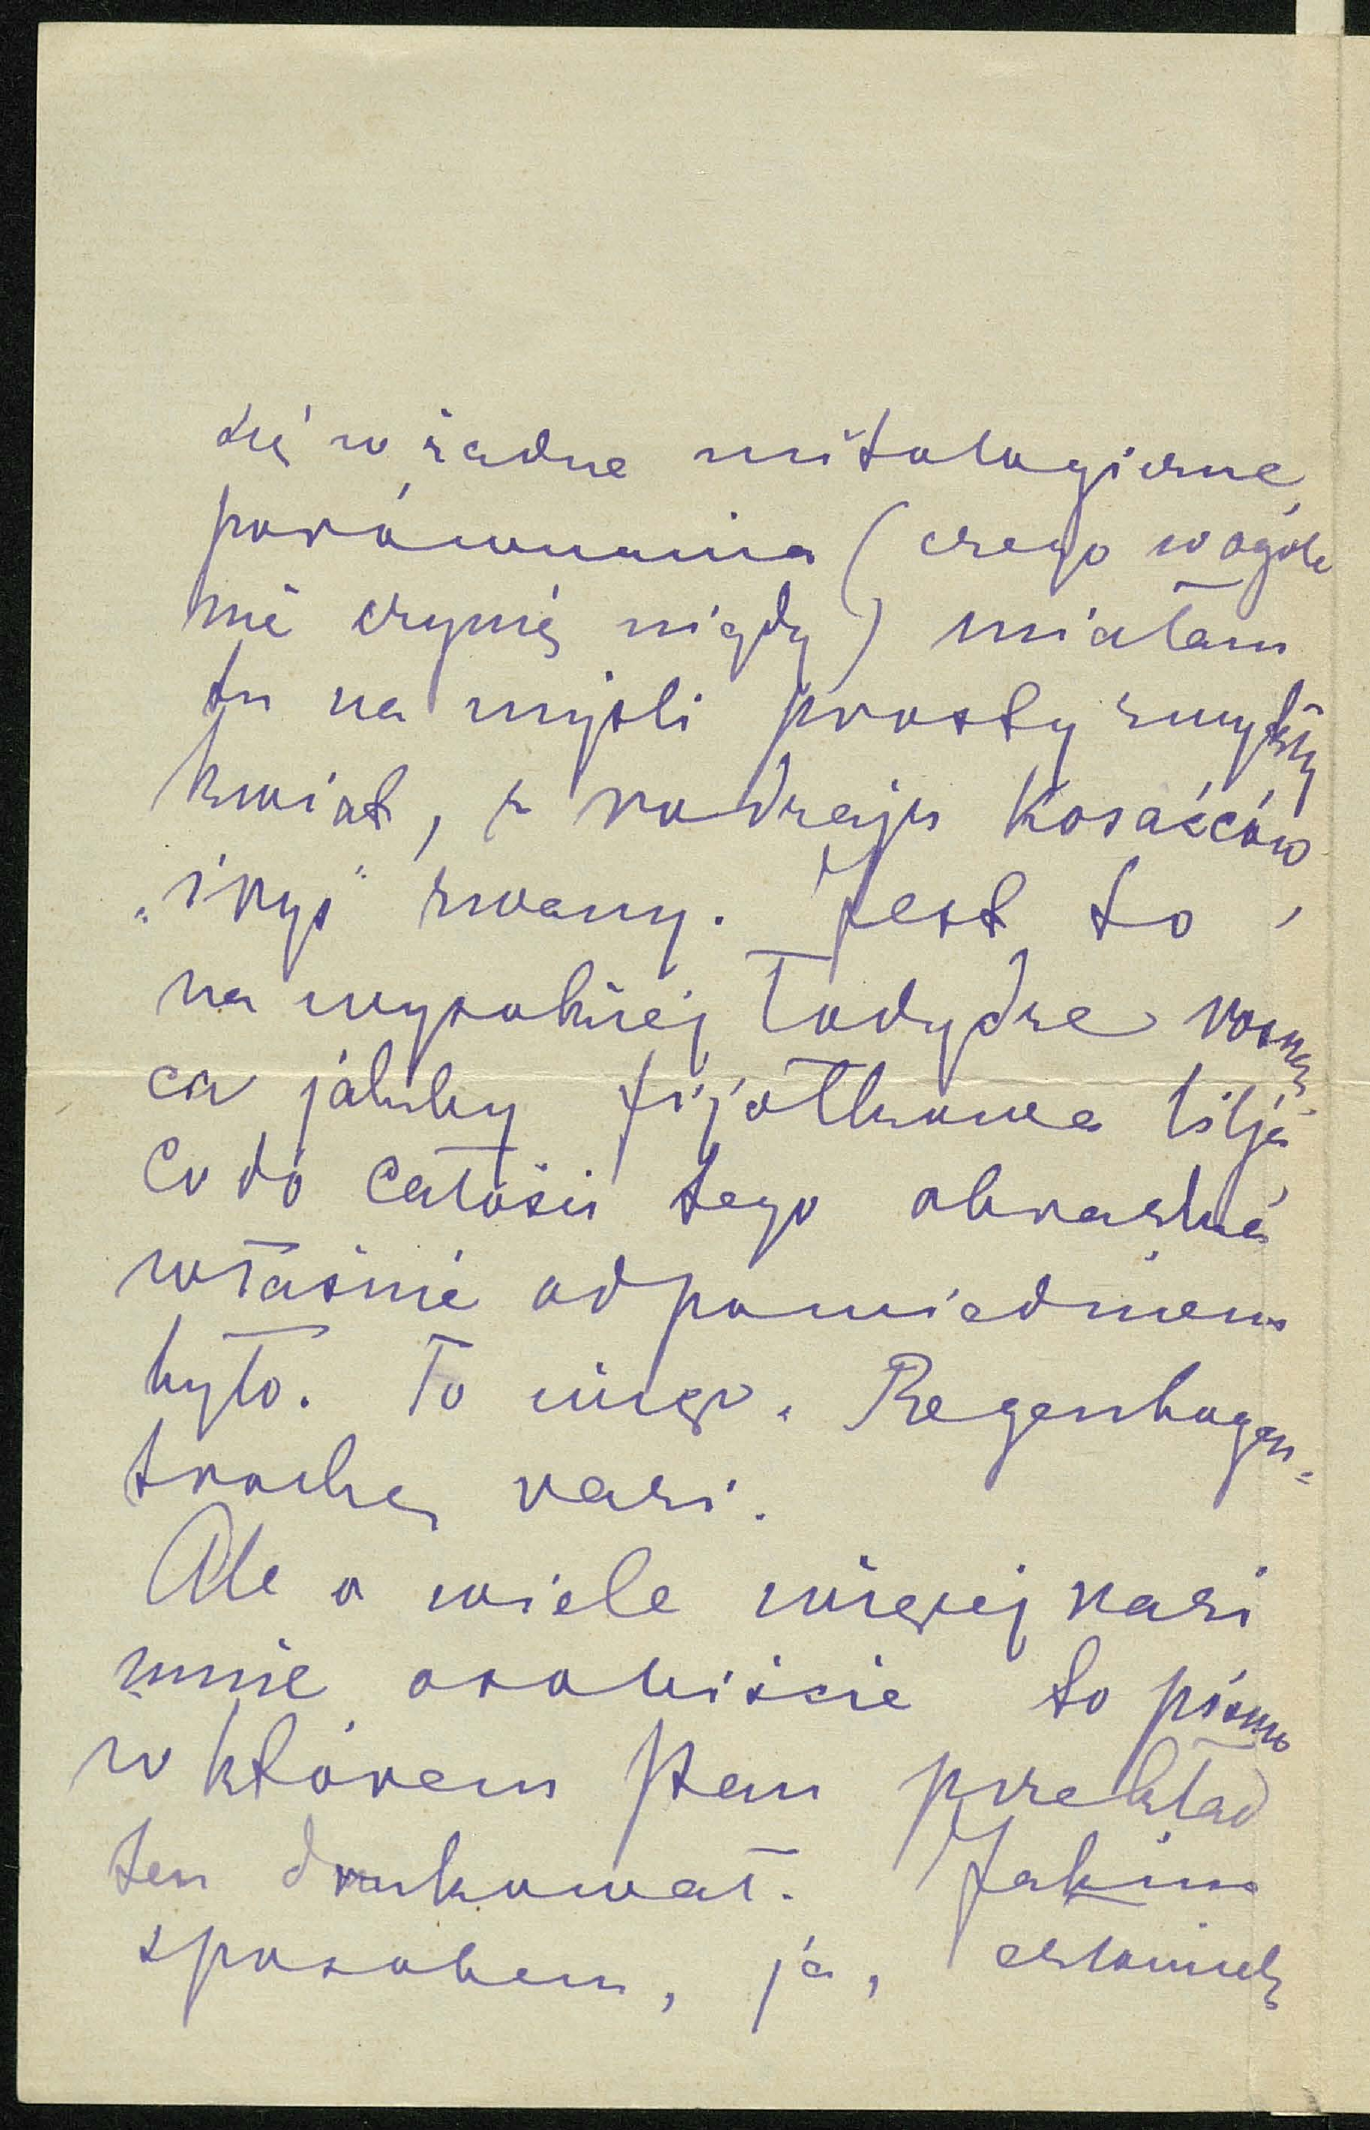 się w żadne mitologiczne
porównania (czego wogóle
nie czynię nigdy) miałam
tu na myśli prosty zwykły
kwiat, z rodzaju Kosaćców
„irys” zwany. Jest to,
na wysokiej łodydze rosną-
ca jakby fijołkowa lilja
Co do całości tego obrazka
właśnie odpowiedniem
było. To więc „Regenbogen-
trochę razi.
Ale o wiele więcej razi
mnie osobiście to pismo
w którem Pan przekład
ten drukował. Jakim
sposobem, ja, członek